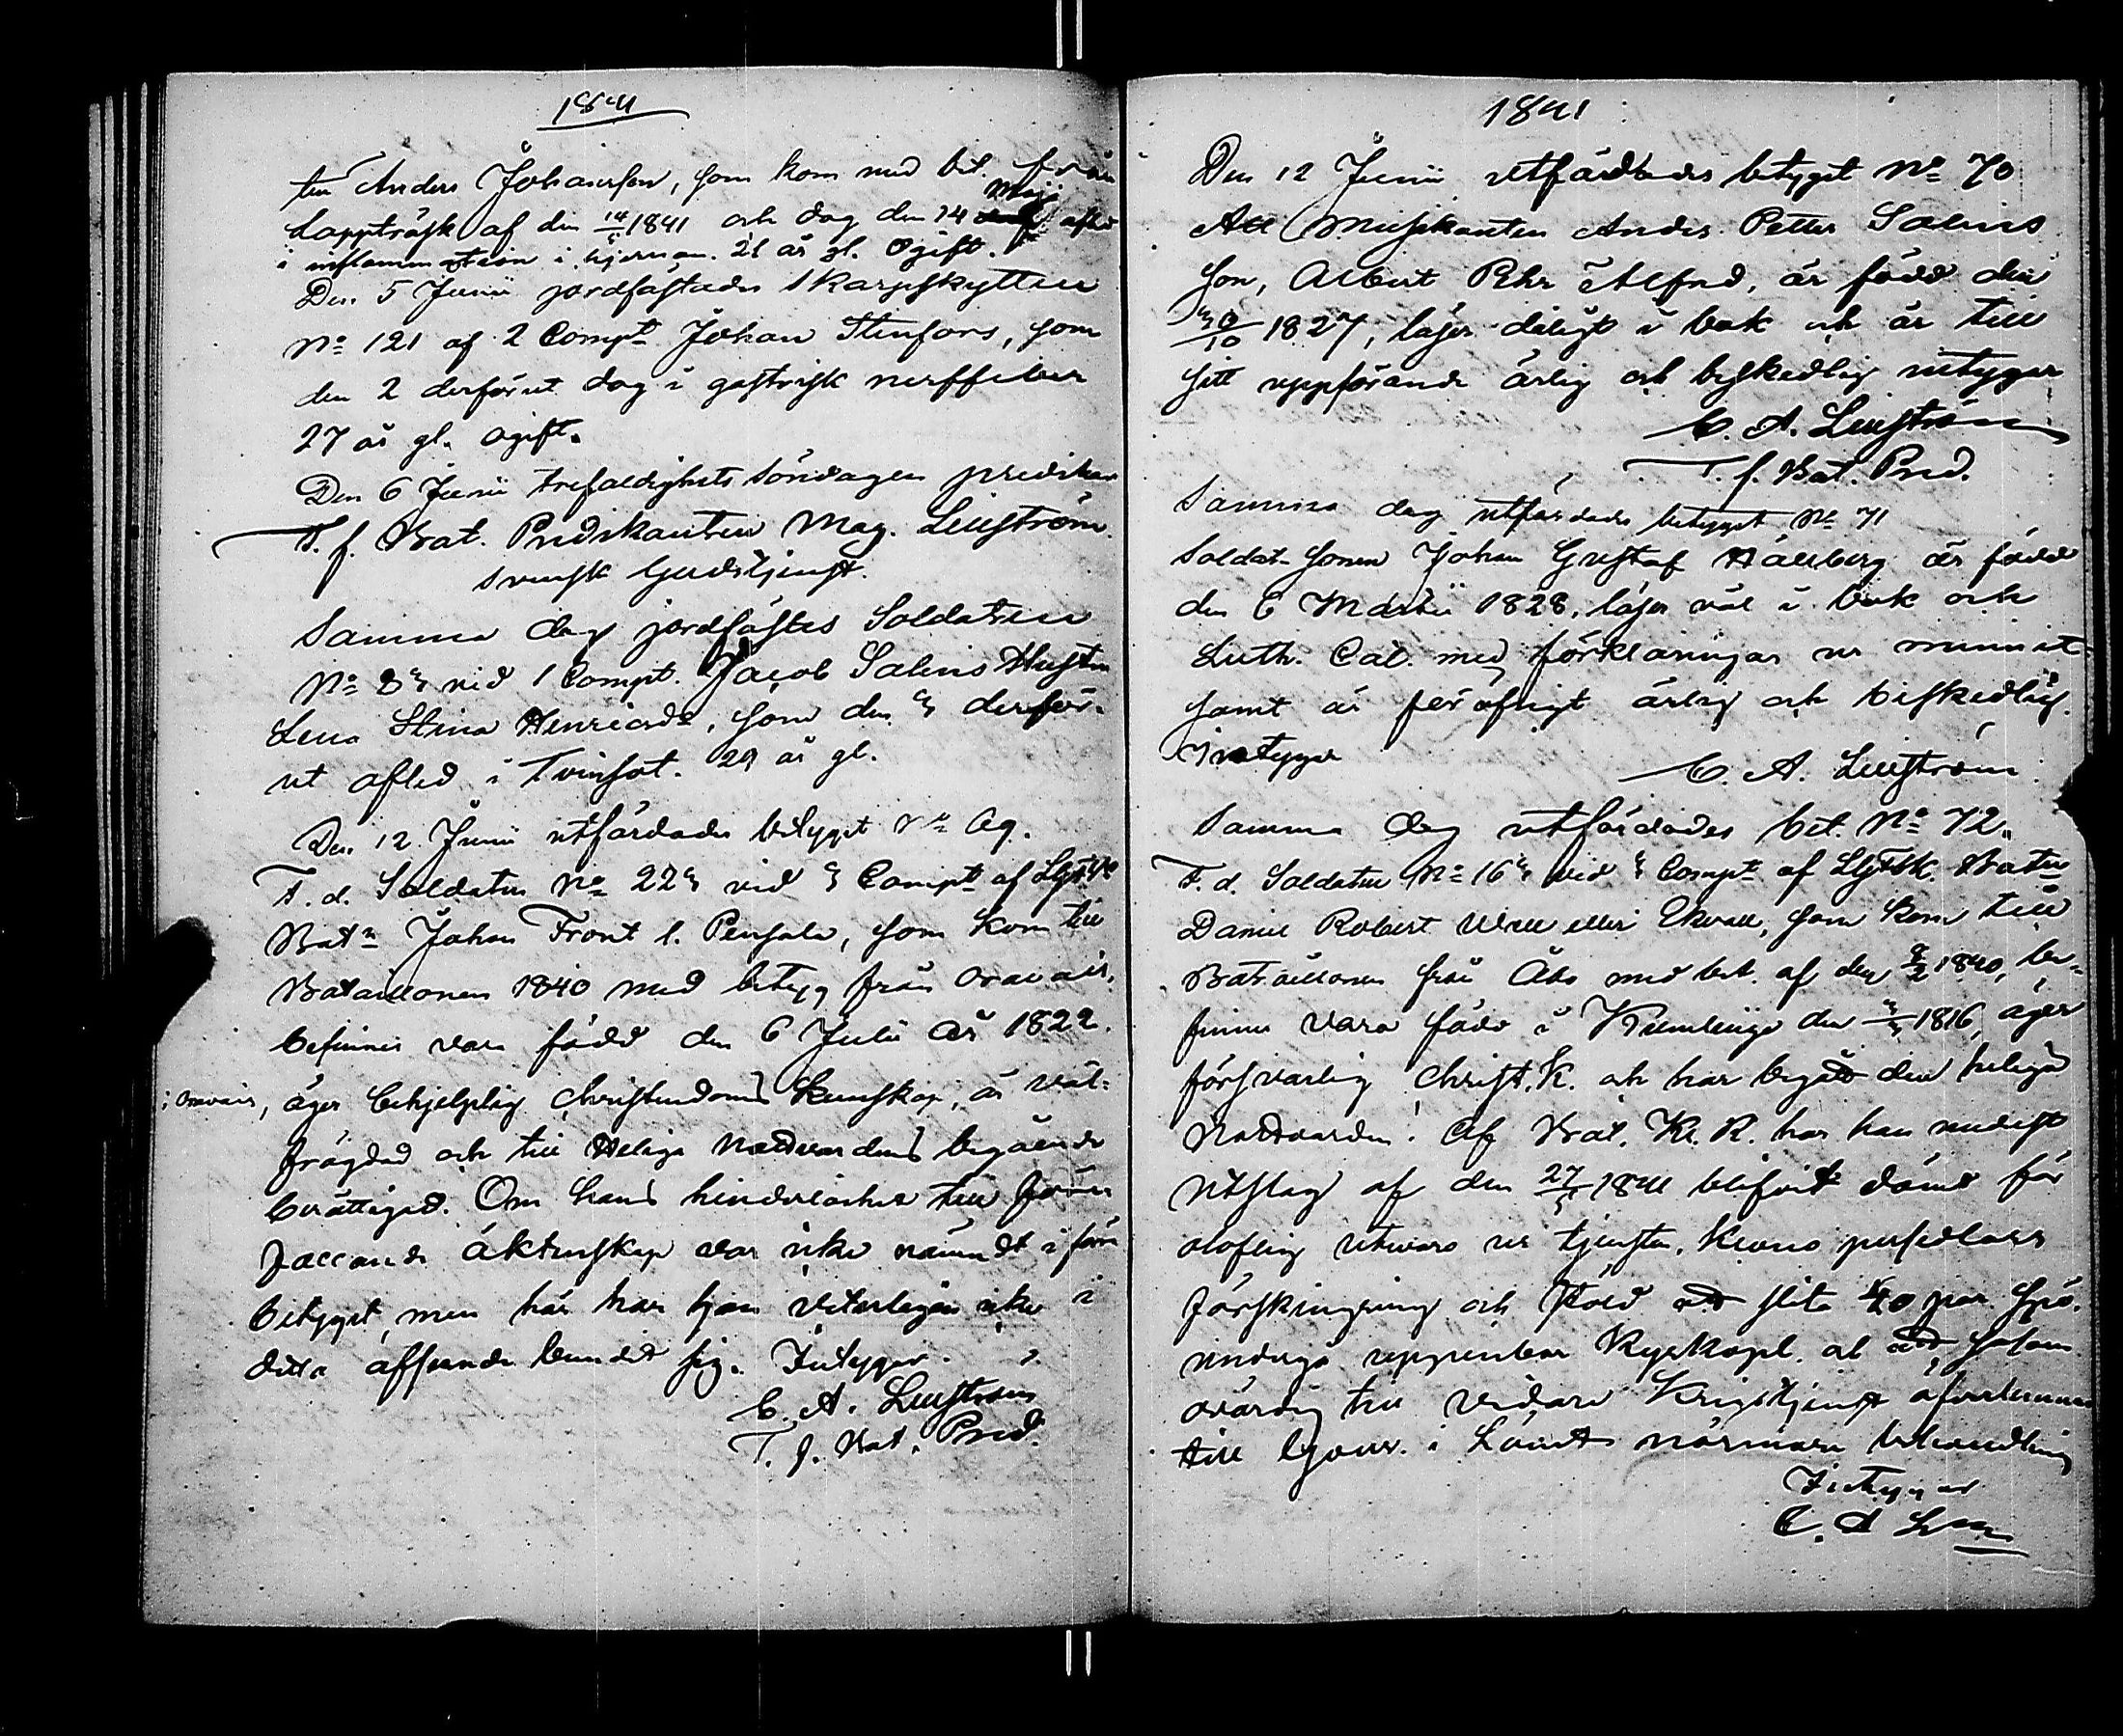 1841
ten Anders Johansson, som kom med bet. från
Lappträsk af den 14/5 1841 och dog den 14 Maji afled
i inflammation i hjernan. 21 år gl. Ogift.
Den 5 Junii jordfästades Skarpskytten
No 121 af 2 Compt Johan Stenfors, som
den 2 derförut dog i gastrisk nerffeber
27 år gl. ogift.
Den 6 Junii trefaldighets söndagen predikar
T. f. Bat. Predikanten Mag.
Svensk Gudstjenst.
Samma dag jordfästes Soldaten
No vid 1 Compt. Jacob Salins Hustru
Lena Stina Henricsdr, som den derför-
ut afled i Tvinsot. 29 år gl.
Den 12 Junii utfärdades betyget No
F. d. Soldaten No vid Compt af
Batn Johan Front l. Pensala, som kom till
Bataillonen 1840 med betyg från Oravais,
befinnes vara född den 6 Julii år 1822
i Oravais, äger behjelplig Christendoms kunskap, är väl-
frägdad och till Heliga Nattvardens begående
berättigad. Om hans hinderlöshet till
äktenskap var icke nämndt i förra
betyget, men här har han veterligen icke i
detta afseende bundit sig. Intygar
C. A.
T. f. Bat. Pred.
1841
Den 12 Junii utfärdades betyget No 70
Att Musikanten Anders Petter Salins
son, Albert Pehr Alfred, är född den
1827, läser dåligt i bok och är till
sitt uppförande ärlig och beskedlig intygar
C. A.
T. f. Bat. Pred.
Samma dag utfärdades betyget No 71
Soldat-sonen Johan Gustaf Hällberg är född
den 6 Martii 1828, läser väl i bok och
Luth. Cat. med förklaringar ur minnet
samt är föröfrigt ärlig och beskedlig.
Intygar
C. A.
Samma dag utfärdades bet. No 72.
F. d. Soldaten No 16 vid Compt af Batn
Daniel Robert eller Ekvall, som kom till
Bataillonen från Åbo med bet. af den 1840, be-
finnes vara född i Kumlinge den 1816, äger
försvarlig Christ. K. och har begått den heliga
Nattvarden. Af Bat. Kr. R. har han medelst
Utslag af den 27/5 1841 blifvit dömd för
olaflig utevaro ur tjensten, krono persedlars
förskingring och stöld att slita 40 par spö,
undergå uppenbar Kyrkopl. och såsom
ovärdig till vidare Krigstjenst
till Gouv. i Länets närmare behandling
Intygar
C. A.